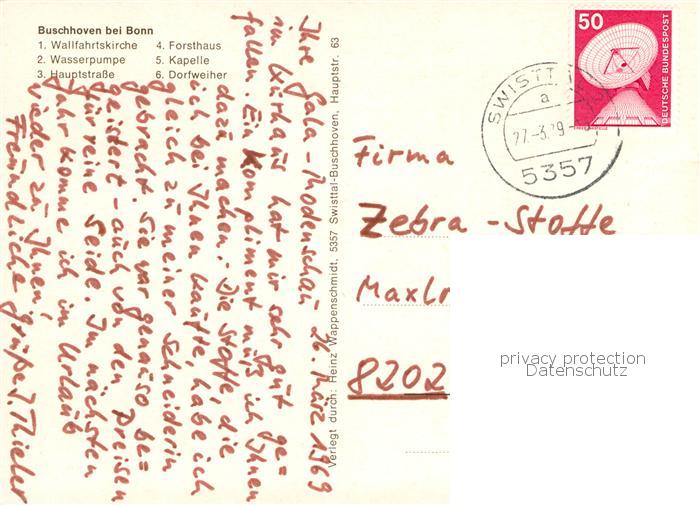 Buschhoven bei Bonn
1. Wallfahrtskirche 4. Forsthaus
2. Wasserpumpe 5. Kapelle
3. Hauptstraße 6. Dorfweiher
26. März 1969
Ihre Gala-Modenschau
im Kurhaus hat mir sehr gut ge=
fallen. Ein Kompliment muß ich Ihnen
dazu machen. Die Stoffe, die
ich bei Ihnen kaufte, habe ich
gleich zu meiner Schneiderin
gebracht. Sie war genauso be=
geistert - auch von den Preisen
für reine Seide. Im nächsten
Jahr komme ich im Urlaub
wieder zu Ihnen,
Freundliche Grüße I. Thieler
Verlegt durch: Heinz Wappenschmidt, 5357 Swisttal-Buschhoven, Hauptstr. 63
50
DEUTSCHE BUNDESPOST
SWISTT
a
27.-3.79
5357
Firma
Zebra-Stoffe
8202
privacy protection
Datenschutz